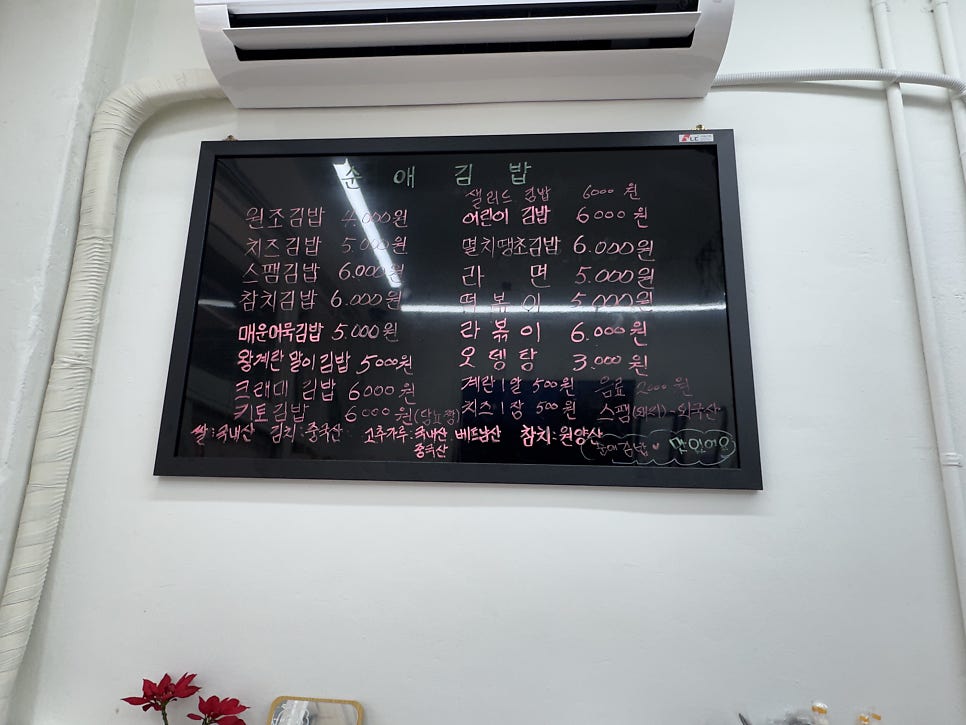 순애김밥
원조김밥 4.000원
치즈김밥 5.000원
스팸김밥 6.000원
참치김밥 6.000원
매운어묵김밥 5.000원
왕계란말이김밥 5000원
크래미 김밥 6000원
키토김밥 6000원(당뇨짱)
샐러드 김밥 6000원
어린이 김밥 6000원
멸치땡초김밥 6.000원
라면 5.000원
떡볶이 5,000원
라볶이 6.000원
오뎅탕 3.000원
계란1알 500원 음료 2000원
치즈1장 500원 스팸(돼지)-외국산
쌀:국내산 김치:중국산 고추가루:국내산.베트남산 참치:원양산
중국산
순애김밥♥ 맛있어요